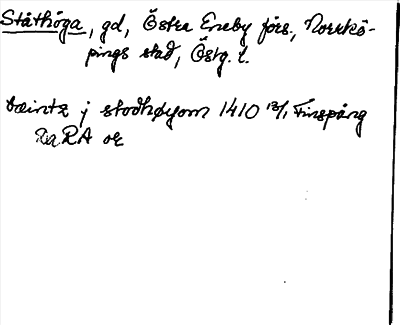 Ståthöga, gd, Östra Eneby förs., Norrkö-
pings stad, Östg. l.
bœintz j stodhøyom 1410 13/1 Finspång
RA or